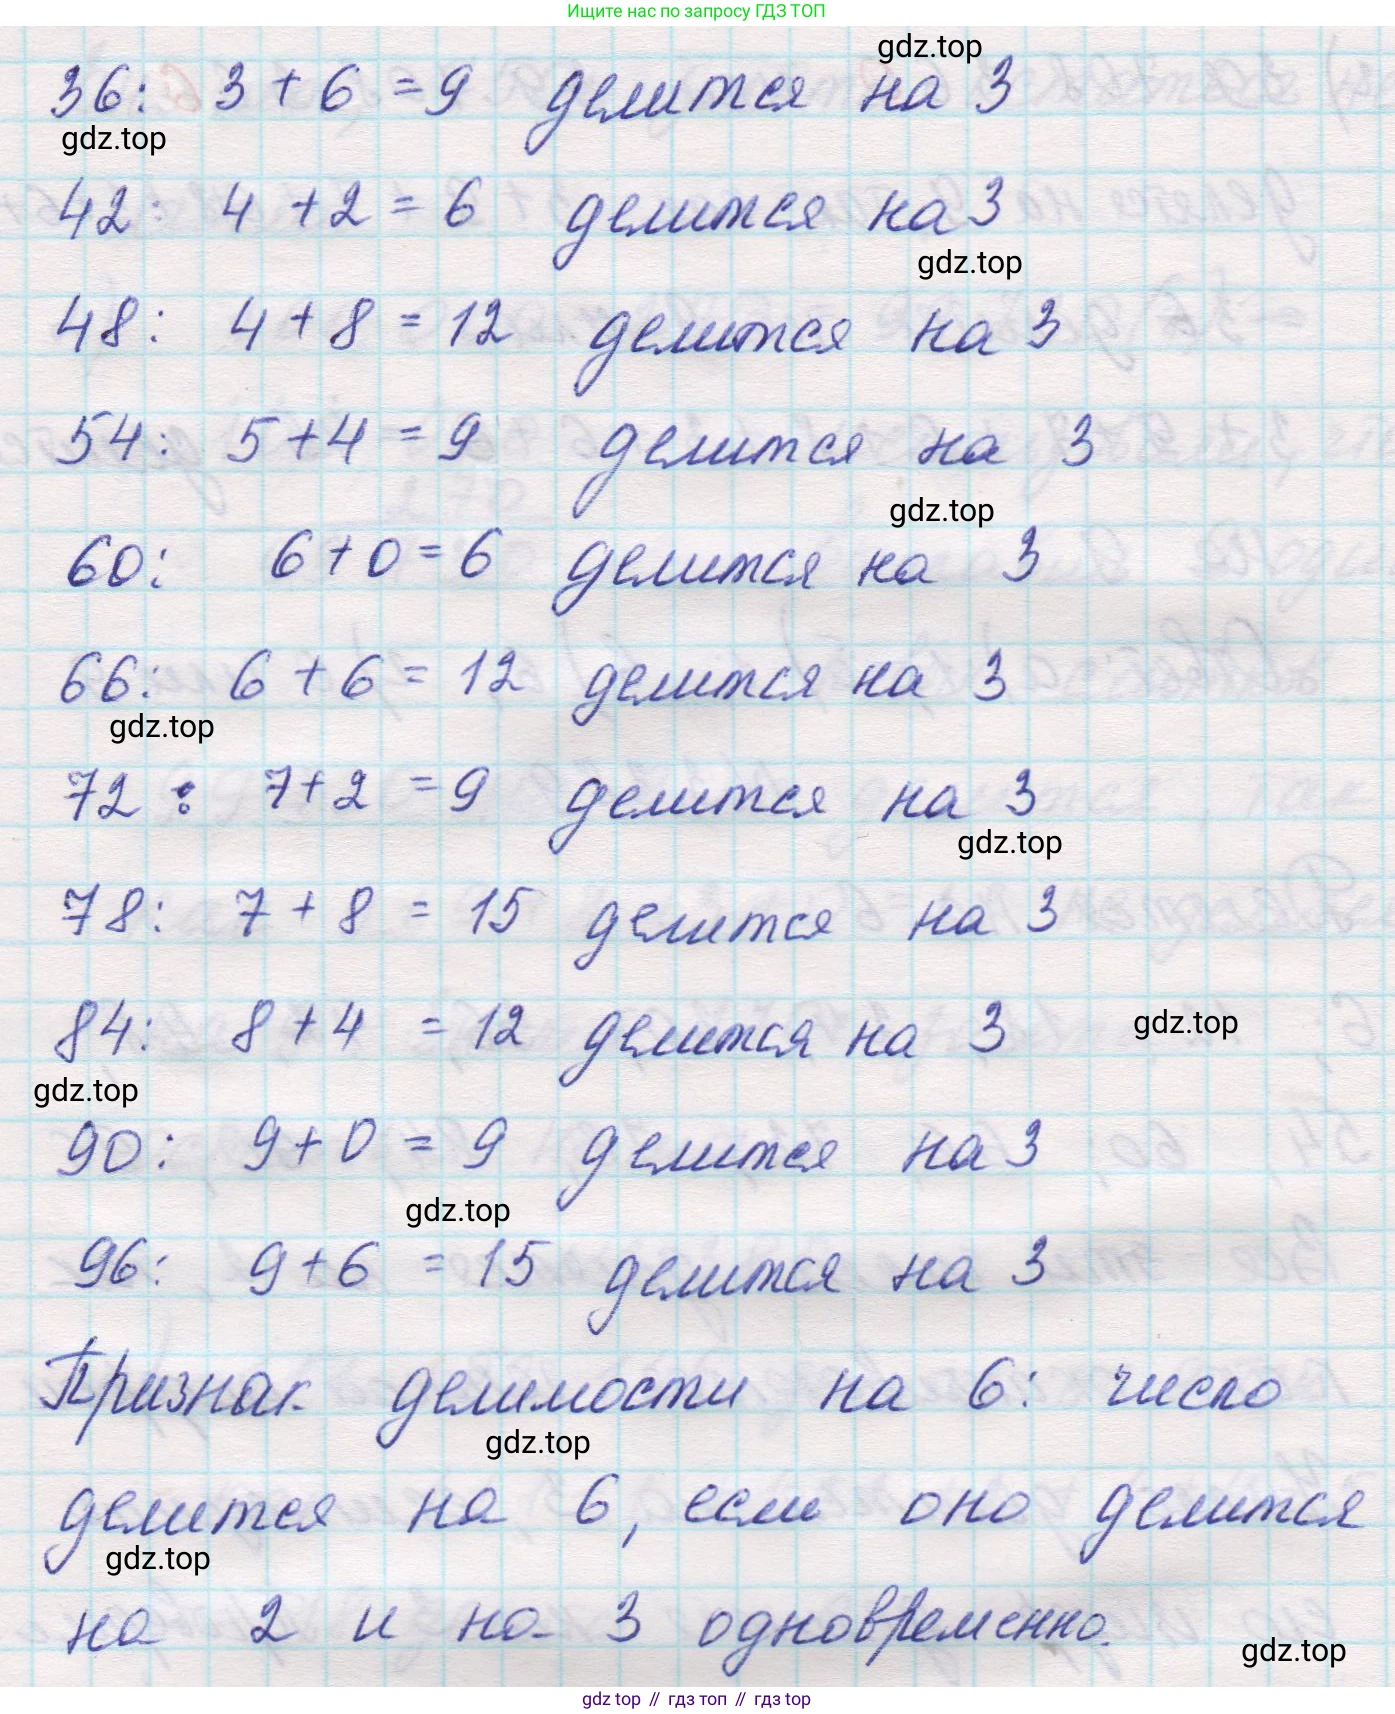 Ищите нас по запросу ГДЗ ТОП
gdz.top
36: 3 + 6 = 9 делится на 3
gdz.top
42: 4 + 2 = 6 делится на 3
gdz.top
48: 4 + 8 = 12 делится на 3
54: 5 + 4 = 9 делится на 3
gdz.top
60: 6 + 0 = 6 делится на 3
66: 6 + 6 = 12 делится на 3
gdz.top
72: 7 + 2 = 9 делится на 3
gdz.top
78: 7 + 8 = 15 делится на 3
84: 8 + 4 = 12 делится на 3
gdz.top
gdz.top
90: 9 + 0 = 9 делится на 3
gdz.top
96: 9 + 6 = 15 делится на 3
Признак делимости на 6: число
gdz.top
делится на 6, если оно делится
gdz.top
на 2 и на 3 одновременно.
gdz.top
gdz top // гдз топ // гдз top